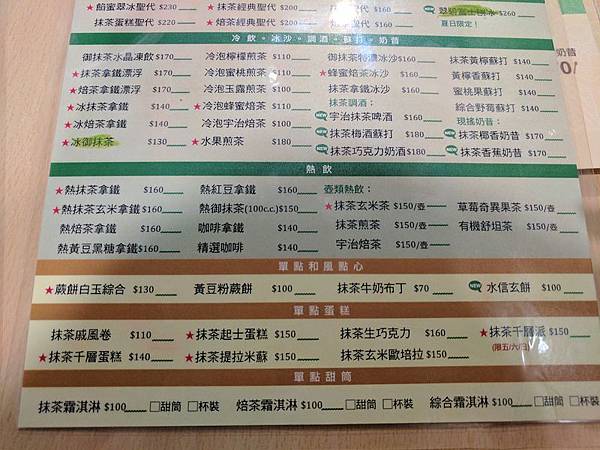 ★餡蜜翠冰聖代 $230 ★抹茶經典聖代 $200 聖代 $220 NEW 翠碧富士刨冰 $260
抹茶蛋糕聖代 $220 ★焙茶經典聖代 $200 聖代 $200 夏日限定！
冷飲。冰沙。調酒。蘇打。奶昔
御抹茶水晶凍飲 $170 冷泡檸檬煎茶 $110 御抹茶特濃冰沙 $160 抹茶黃檸蘇打 $140
★抹茶拿鐵漂浮 $170 冷泡蜜桃煎茶 $110 ★蜂蜜焙茶冰沙 $160 黃檸蘇打 $140
★焙茶拿鐵漂浮 $170 冷泡玉露煎茶 $100 抹茶拿鐵冰沙 $160 蜜桃果蘇打 $140
★冰抹茶拿鐵 $140 ★冷泡蜂蜜焙茶 $110 抹茶調酒： 綜合野莓蘇打 $140
★冰焙茶拿鐵 $140 冷泡宇治焙茶 $100 NEW 宇治抹茶啤酒 $160 現搖奶昔：
★冰御抹茶 $130 ★水果煎茶 $180 NEW 抹茶梅酒蘇打 $180 NEW 抹茶椰香奶昔 $170
NEW 抹茶巧克力奶酒 $180 NEW 抹茶香蕉奶昔 $170
奶昔
熱飲
★熱抹茶拿鐵 $160 熱紅豆拿鐵 $160 壺類熱飲：
★熱抹茶玄米拿鐵 $160 熱御抹茶(100c.c.) $150 ★抹茶玄米茶 $150/壺 草莓奇異果茶 $150/壺
熱焙茶拿鐵 $160 咖啡拿鐵 $140 抹茶煎茶 $150/壺 有機舒坦茶 $150/壺
熱黃豆黑糖拿鐵 $160 精選咖啡 $140 宇治焙茶 $150/壺
單點和風點心
★蕨餅白玉綜合 $130 黃豆粉蕨餅 $100 抹茶牛奶布丁 $70 NEW 水信玄餅 $100
單點蛋糕
抹茶戚風卷 $110 ★抹茶起士蛋糕 $150 抹茶生巧克力 $160 ★抹茶千層派 $150
★抹茶千層蛋糕 $140 ★抹茶提拉米蘇 $150 抹茶玄米歐培拉 $150 (限五/六/日)
單點甜筒
抹茶霜淇淋 $100 □甜筒 □杯裝 焙茶霜淇淋 $100 □甜筒 □杯裝 綜合霜淇淋 $100 □甜筒 □杯裝